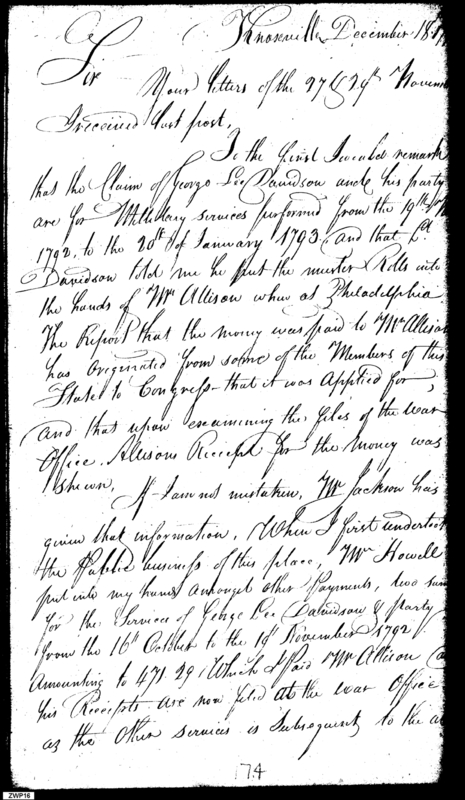 Knoxville December 18
Sir
Your letters of the 27 & 29th Novem
I received last post.
To the first I would remark
that the Claim of George Lee Davidson and his party
are for Military services performed from the 19th
1792, to the 20th of January 1793 and that
Davidson told me he put the muster Rolls into
the hands of Mr Allison when at Philadelphia
The Report that the money was paid to Mr Allison
has originated from some of the Members of this
State to Congress – that it was Applied for,
and that upon examining the files of the war
Office. Allisons Receipt for the money was
shewn. If I am not mistaken, Mr Jackson has
given that information. When I first undertook
the Public business of this place, Mr Howell
put into my hands amongst other Payments, two sum
for the Services of George Lee Davidson & party
from the 16th October to the 19th November 1792
Amounting to 471 29 Which I Paid Mr Allison
his Receipts are now filed at the war Office
as the other services is Subsequent to the
174
ZWP16